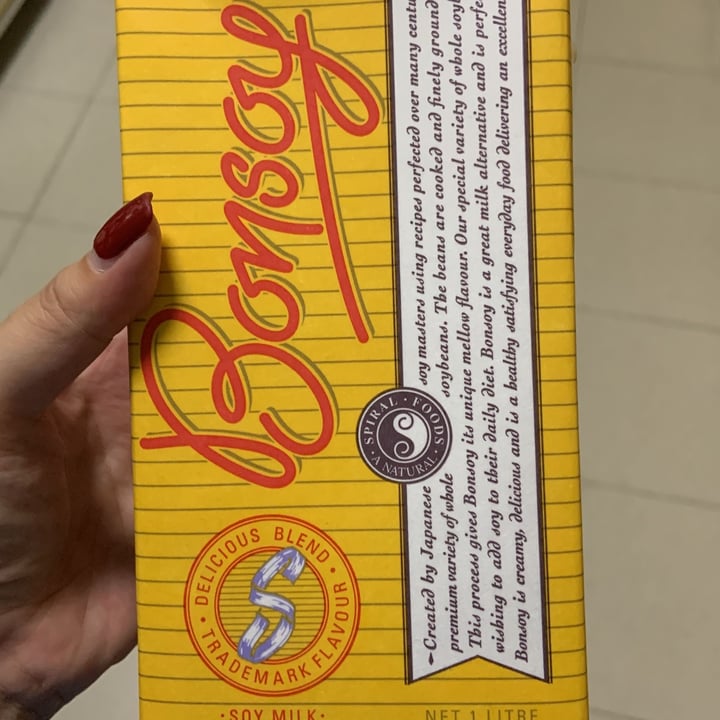 Bonsoy
Created by Japanese soy masters using recipes perfected over many
premium variety of whole soybeans. The beans are cooked and finely ground
This process gives Bonsoy its unique mellow flavour. Our special variety of whole
wishing to add soy to their daily diet. Bonsoy is a great milk alternative and is
Bonsoy is creamy, delicious and is a healthy satisfying everyday food delivering an
SPIRAL · FOODS
· A NATURAL ·
· DELICIOUS BLEND ·
TRADEMARK FLAVOUR
S
· SOY MILK ·
NET 1 LITRE